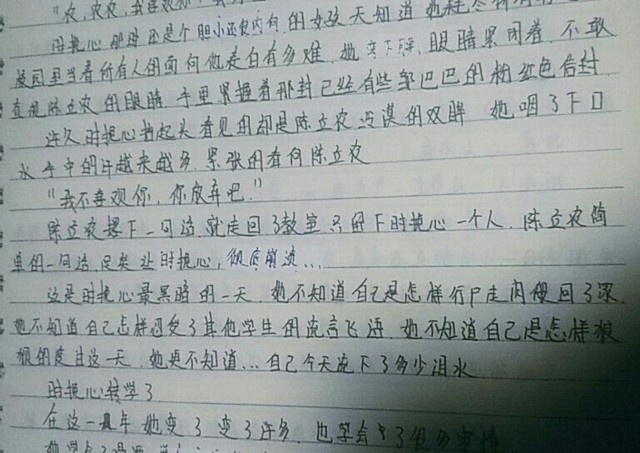 "农，农农，我喜欢你，
时挽心那时还是个胆小还很内向的女孩 天知道她鼓
校园里当着所有人的面向他表白有多难. 她 低下头, 眼睛紧闭着. 不敢
直视陈立农的眼睛 手里紧握着那封已经有些皱巴巴的粉红色信封
许久时挽心抬起头 看见的却是陈立农冷漠的双眸 她咽了下口
水 手中的汗越来越多. 紧张的看向陈立农
"我不喜欢你, 你放弃吧."
陈立农撂下一句话. 就走回了教室 只留下时挽心一个人. 陈立农简
单的一句话. 足矣让时挽心, 彻底崩溃...
这是时挽心最黑暗的一天. 她不知道自己是怎样行尸走肉慢回了家.
她不知道自己怎样忍受了其他学生的流言飞语. 她不知道自己是怎样狼
狈的度过这一天. 她更不知道... 自己今天流下了多少泪水
时挽心转学了
在这一具年 她变了 变了许多. 也学会了很多事情